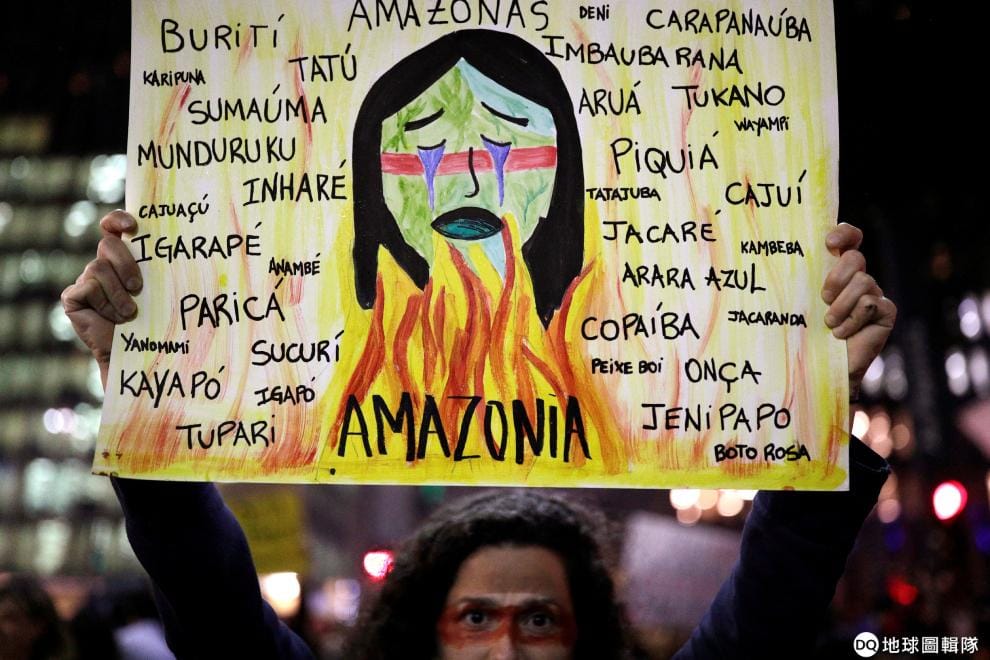 AMAZONAS
BURITÍ
KARIPUNA
TATÚ
SUMAÚMA
MUNDURUKU
INHARÉ
CAJUAÇÚ
IGARAPÉ
ANAMBÉ
PARICÁ
YANOMAMI
SUCURÍ
KAYAPÓ
IGAPÓ
TUPARI
AMAZONIA
DENI
CARAPANAÚBA
IMBAUBARANA
ARUÁ
TUKANO
WAYAMPI
PIQUIÁ
TATAJUBA
CAJUÍ
JACARÉ
KAMBEBA
ARARA AZUL
COPAÍBA
JACARANDA
PEIXE BOI
ONÇA
JENIPAPO
BOTO ROSA
DQ 地球圖輯隊